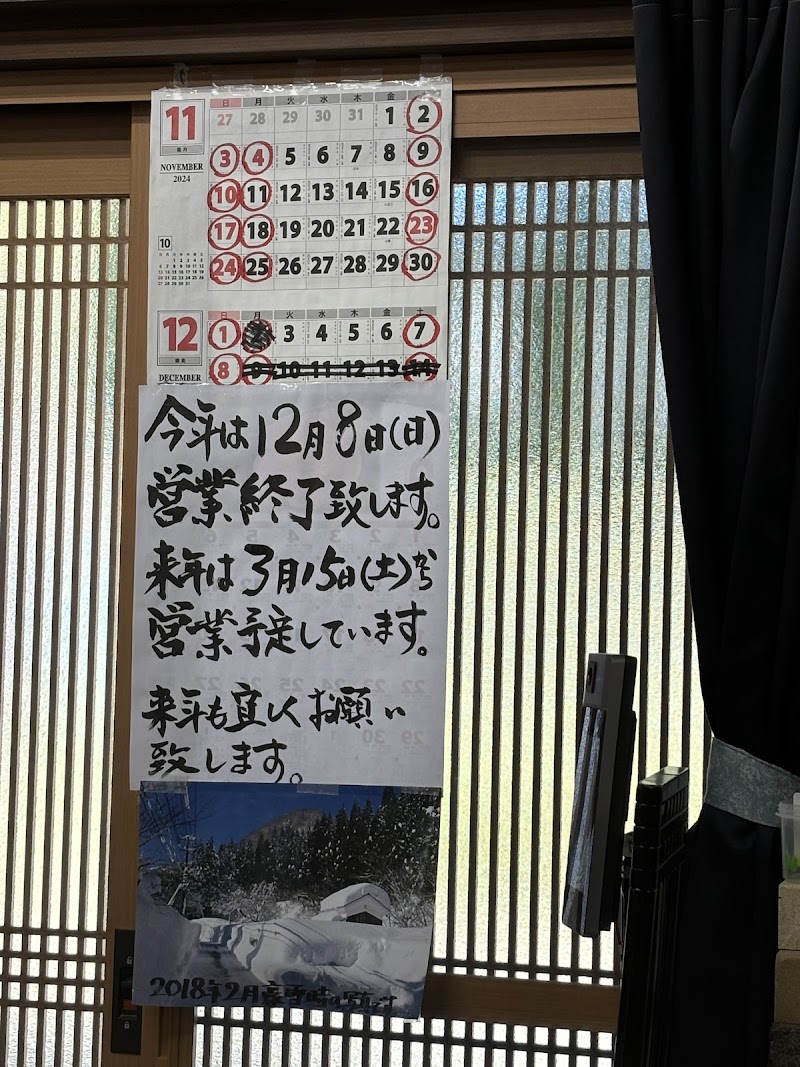 11
NOVEMBER
2024
日 月 火 水 木 金
27 28 29 30 31 1 2
3 4 5 6 7 8 9
10 11 12 13 14 15 16
17 18 19 20 21 22 23
24 25 26 27 28 29 30
10
12
DECEMBER
日 月 火 水 木 金 土
1 3 4 5 6 7
8 9 10 11 12 13 14
今年は12月8日(日)
営業終了致します。
来年は3月15日(土)から
営業予定しています。
来年も宜しくお願い
致します。
2018年2月豪雪時の写真です